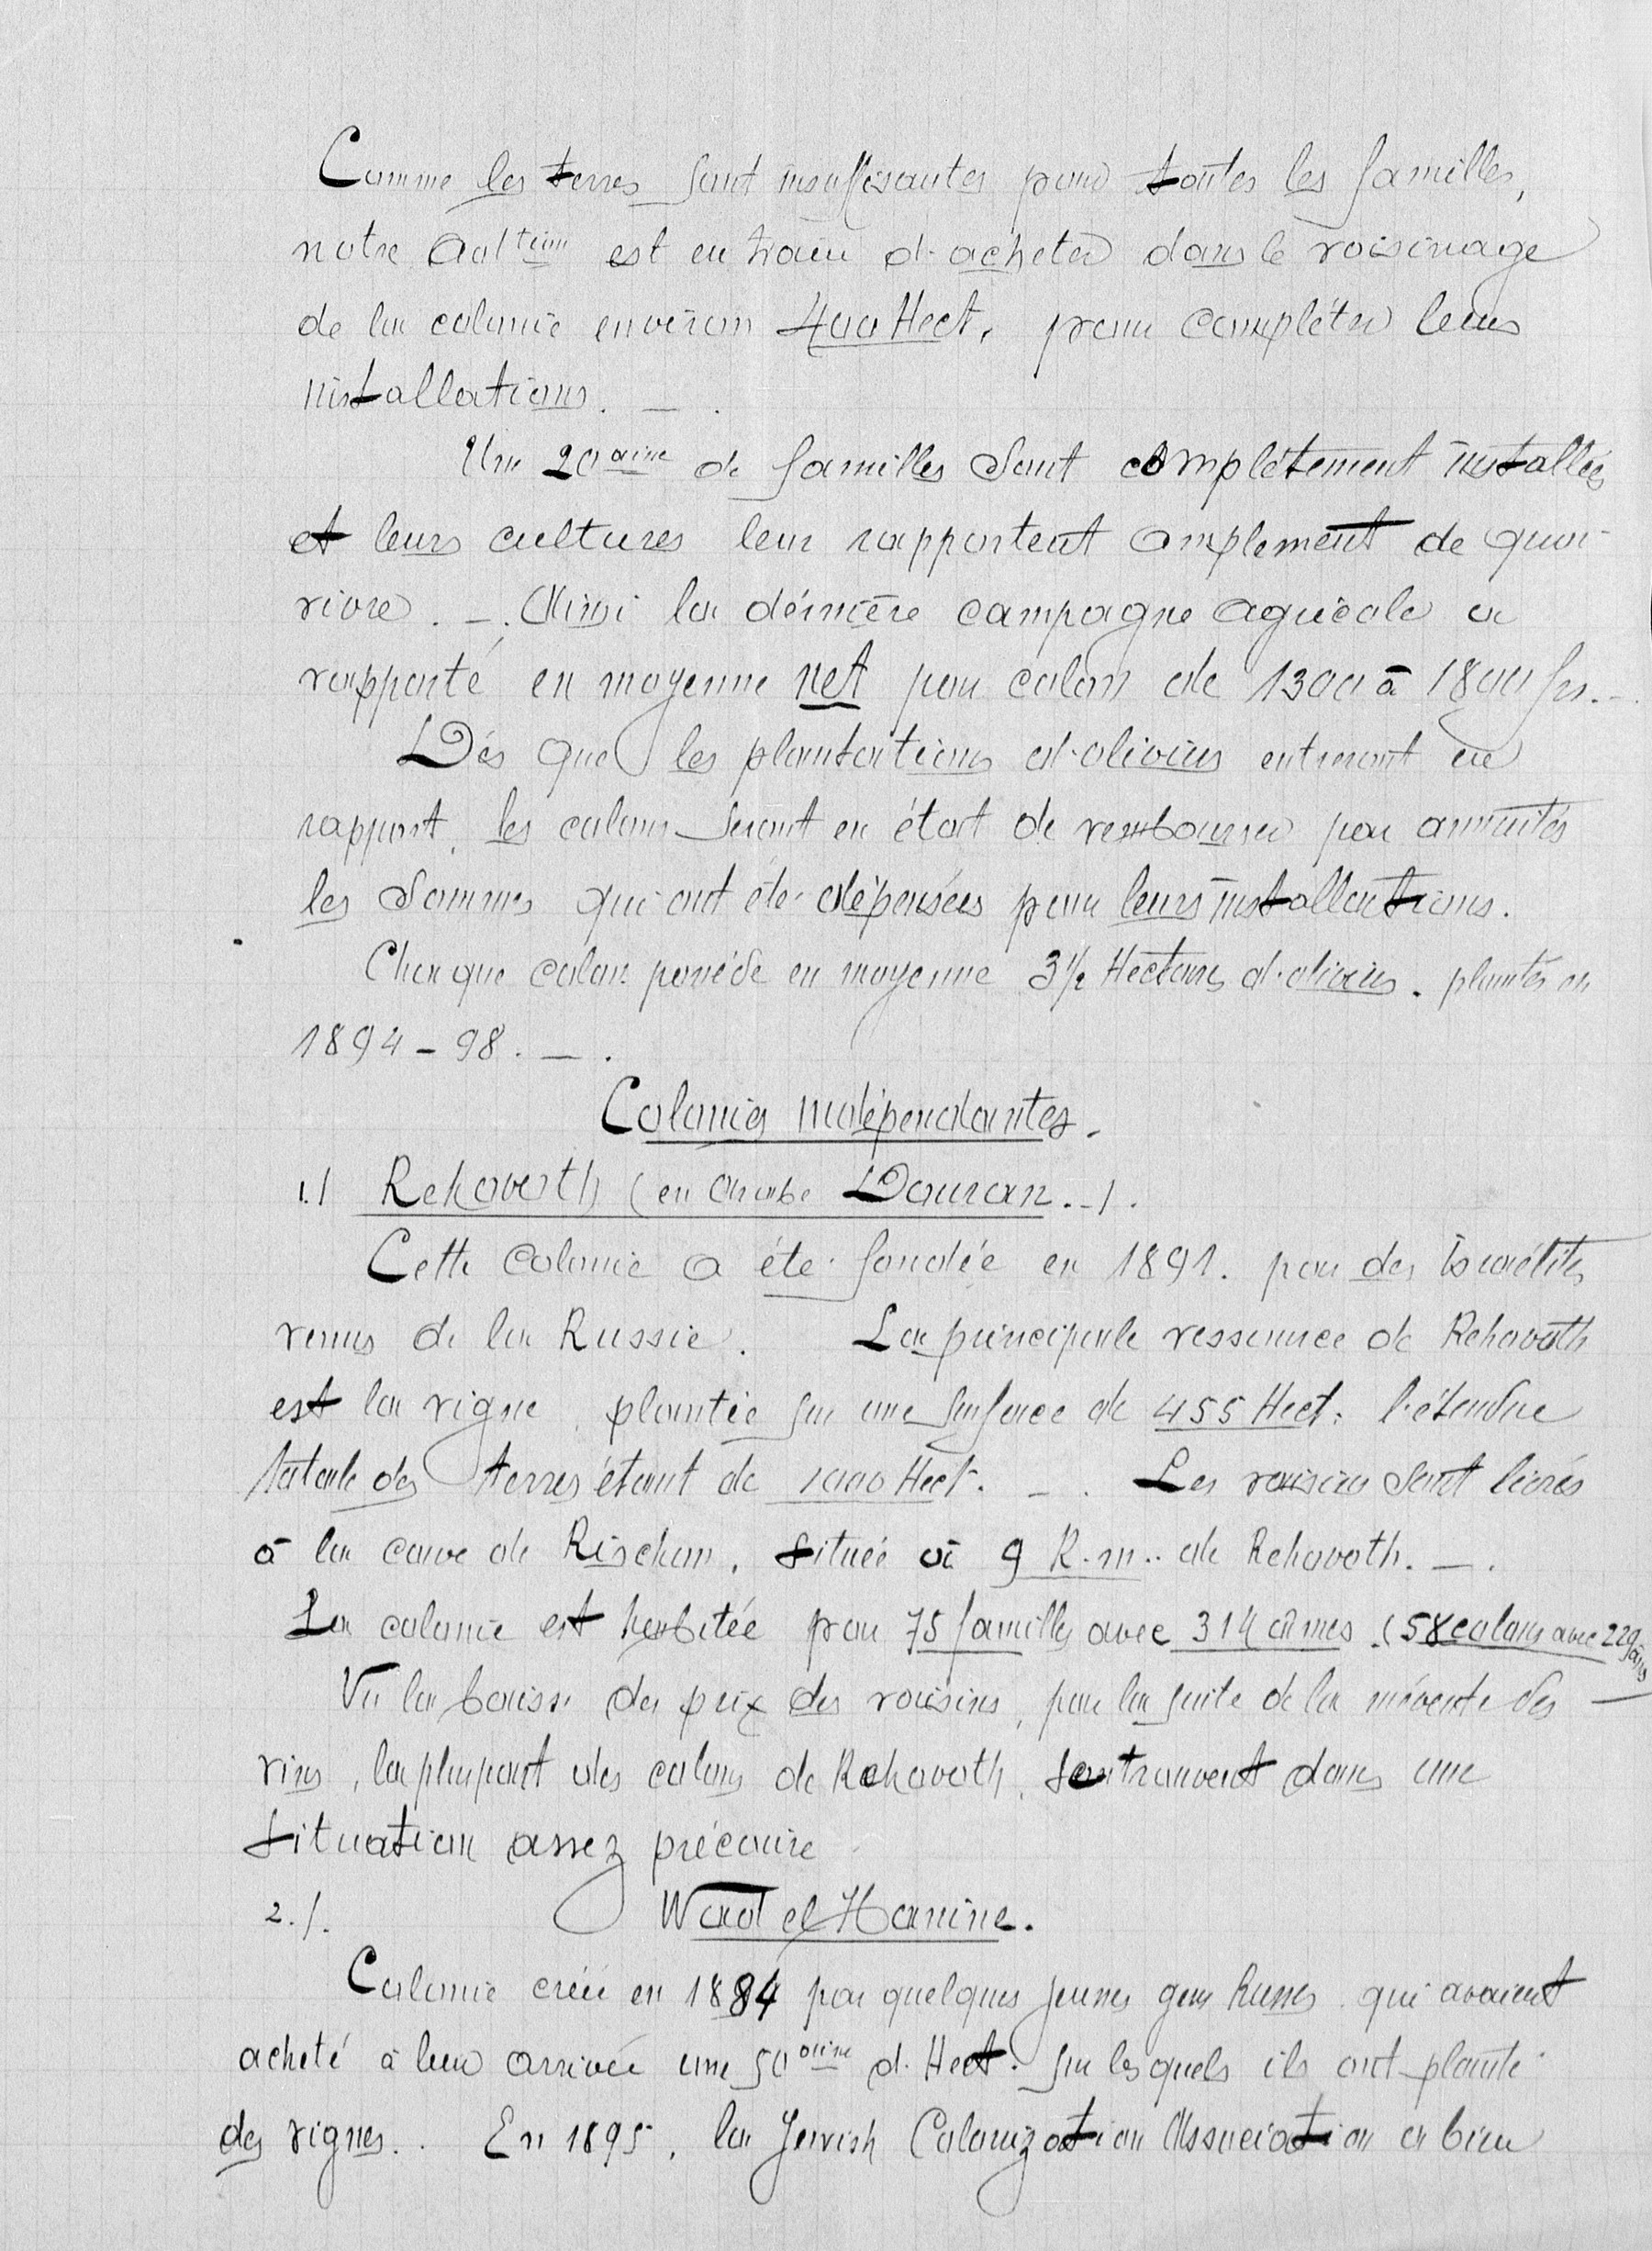 Comme les terres sont insuffisantes pour toutes les familles,
notre Adtion est en train d'acheter dans le voisinage
de la colonie environ 400 Hect. pour compléter leurs
installations. — .
Une 20aine de familles sont complétement installées
et leurs cultures leur rapportent amplement de quoi
vivre. — . Ainsi la dérnière campagne agricole a
rapporté en moyenne net par colon de 1300 à 1800 frs. —
Dés que les plantations d'oliviers entreront en
rapport, les colons seront en état de rembourser par annuités
les sommes qui ont été dépensées pour leurs installations.
Chaque colon posséde en moyenne 3½ Hectares d'oliviers. plantés en
1894 - 98. — .
Colonies indépendantes.
1./ Rehovoth (en Arabe Douran. -).
Cette colonie a été fondée en 1891. par des Israélites
venus de la Russie. La principale ressource de Rehovoth
est la vigne, plantée sur une surface de 455 Hect. l'étendue
totale des terres étant de 1000 Hect. — . Les raisins sont livrés
à la cave de Rischon, située à 9 K.m.. de Rehovoth. — .
La colonie est habitée par 75 familles avec 314 âmes. (58 colons avec 229 âmes
Vu la baisse des prix des raisins, par la suite de la mévente des —
vins, la plupart des colons de Rehovoth, se trouvent dans une
situation assez précaire.
2./. Wad el Hanine.
Colonie créée en 1884 par quelques jeunes gens Russes qui avaient
acheté à leur arrivée une 50aine d'Hect. sur lesquels ils ont planté
des vignes. . En 1895, la Jewish Colonization Association a bien